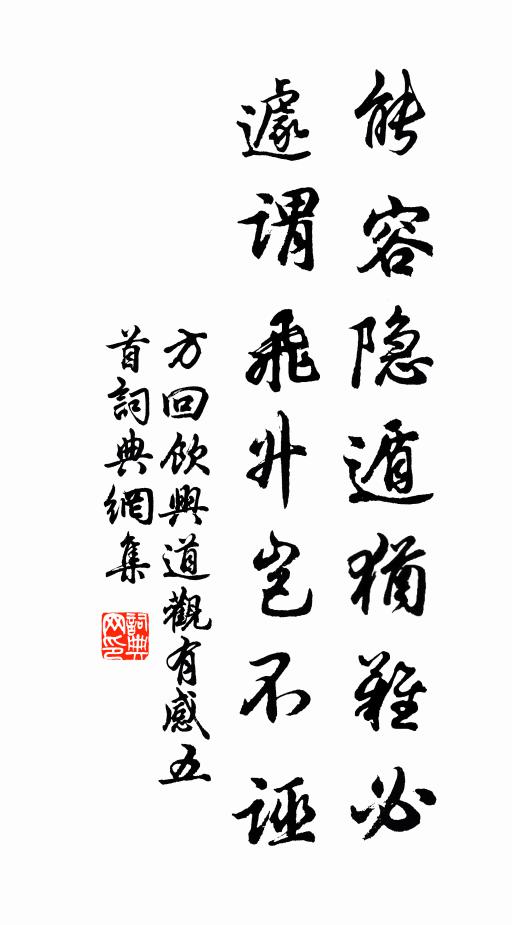 能容隐遁猶難必
遽謂飛升豈不誣
方回飲興道觀有感五
首詞典網集
詞典
网印